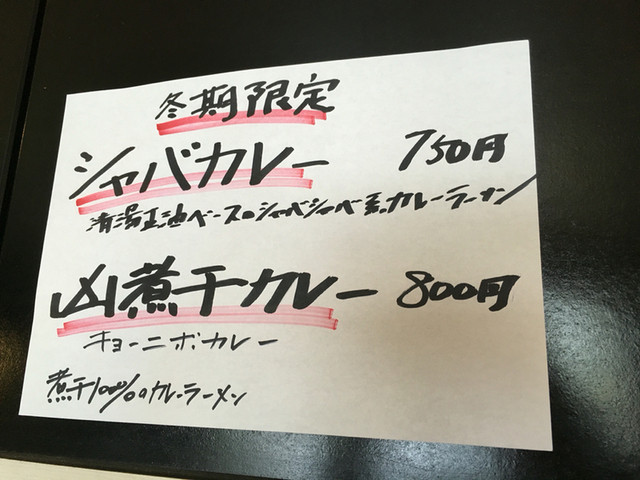 冬期限定
シャバカレー 750円
清湯正油ベースのシャバシャバ系カレーラーメン
凶煮干カレー 800円
キョーニボカレー
煮干100%のカレーラーメン